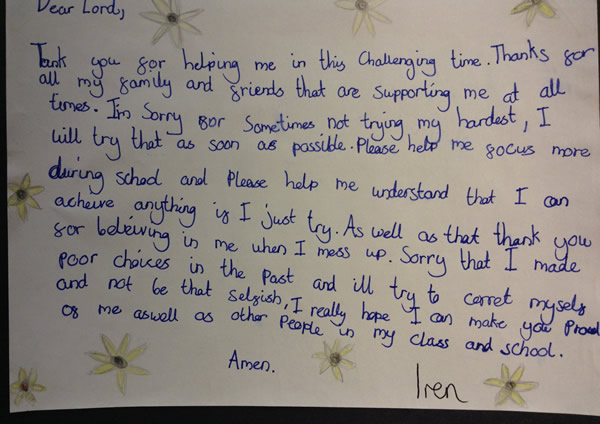 Dear Lord,
Tank you for helping me in this Challenging time. Thanks for
all my family and friends that are supporting me at all
times. I'm Sorry for Sometimes not trying my hardest, I
will try that as soon as possible. Please help me focus more
during school and Please help me understand that I can
acheive anything if I just try. As well as that thank you
for beleiving in me when I mess up. Sorry that I made
poor choices in the Past and ill try to corret myself
and not be that selfish, I really hope I can make you Proud
of me aswell as other People in my class and school.
Amen.
Iren